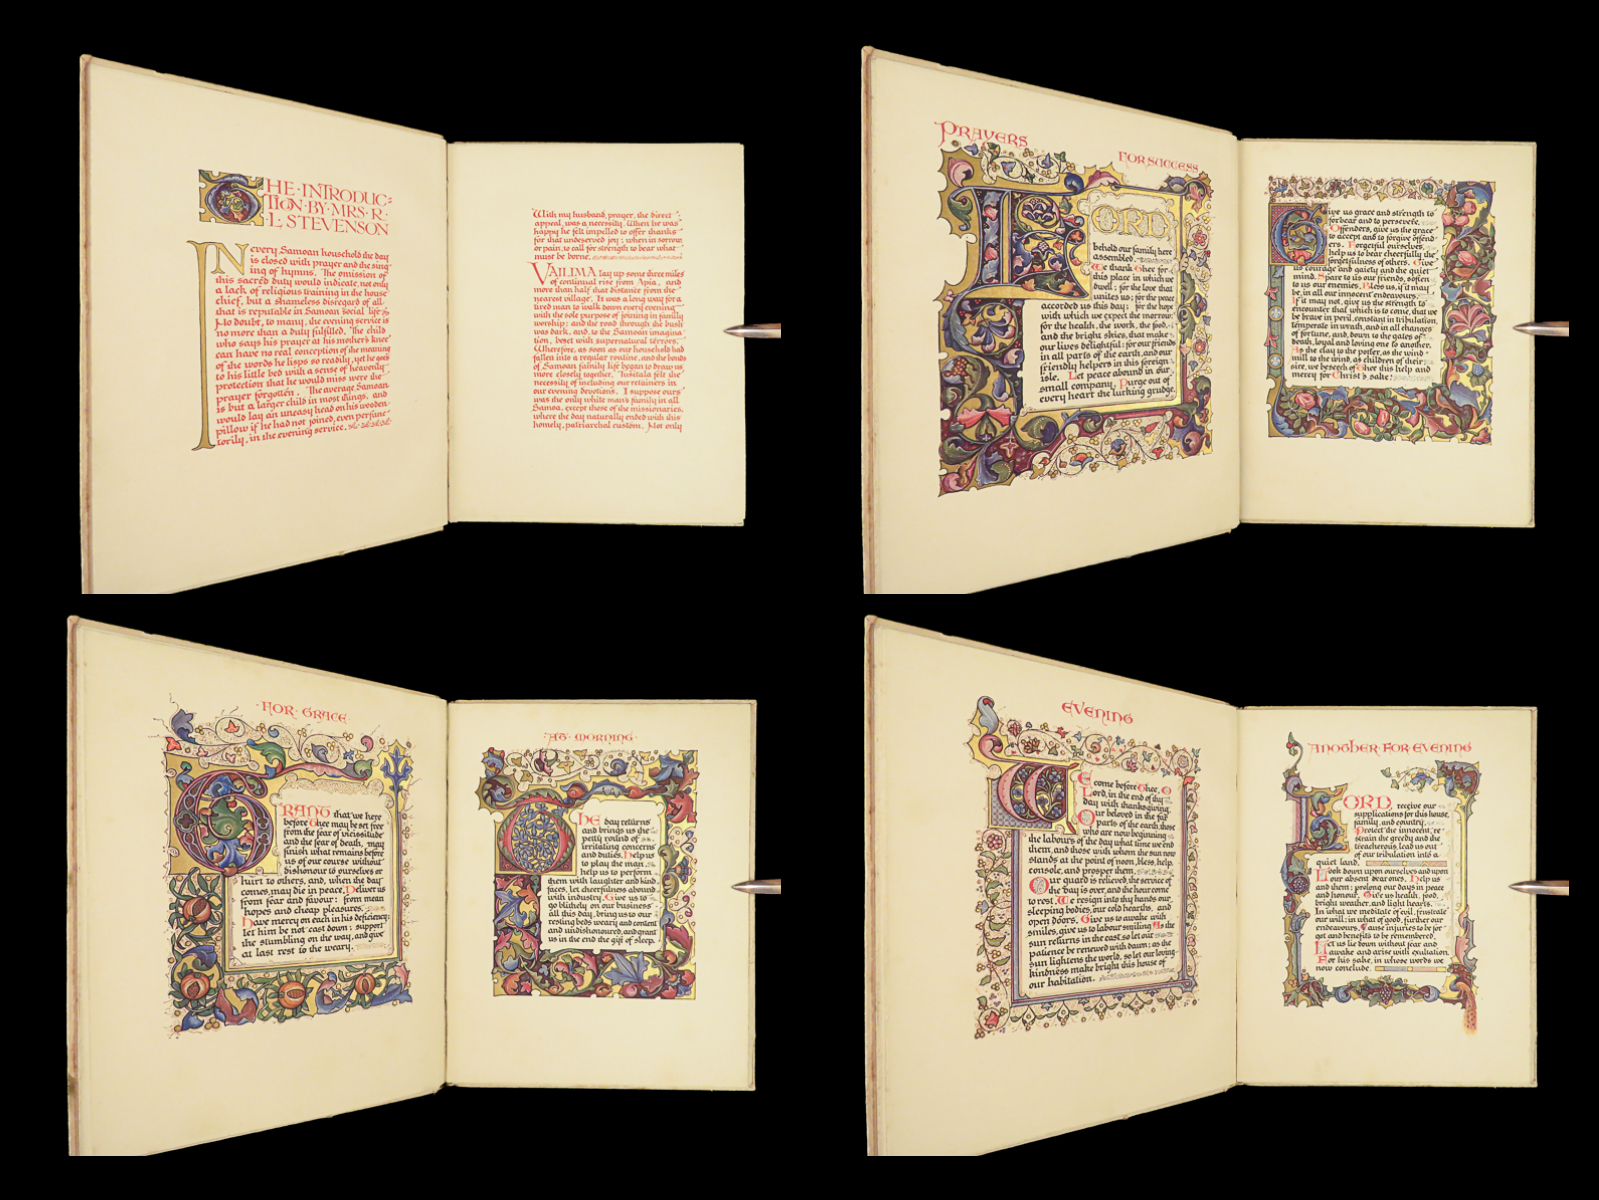 THE·INTRODUC-
TION·BY·MRS·R·
L·STEVENSON
IN every Samoan household the day
is closed with prayer and the sing-
ing of hymns. The omission of
this sacred duty would indicate, not only
a lack of religious training in the house
chief, but a shameless disregard of all
that is reputable in Samoan social life
No doubt, to many, the evening service is
no more than a duty fulfilled. The child
who says his prayer at his mother's knee
can have no real conception of the meaning
of the words he lisps so readily, yet he goes
to his little bed with a sense of heavenly
protection that he would miss were the
prayer forgotten. The average Samoan
is but a larger child in most things, and
would lay an uneasy head on his wooden
pillow if he had not joined, even perfunc-
torily, in the evening service.
With my husband, prayer, the direct
appeal, was a necessity. When he was
happy he felt impelled to offer thanks
for that undeserved joy; when in sorrow
or pain, to call for strength to bear what
must be borne.
VAILIMA lay up some three miles
of continual rise from Apia, and
more than half that distance from the
nearest village. It was a long way for a
tired man to walk down every evening
with the sole purpose of joining in family
worship; and the road through the bush
was dark, and, to the Samoan imagina-
tion, beset with supernatural terrors.
Wherefore, as soon as our household had
fallen into a regular routine, and the bonds
of Samoan family life began to draw us
more closely together, Tusitala felt the
necessity of including our retainers in
our evening devotions. I suppose ours
was the only white man's family in all
Samoa, except those of the missionaries,
where the day naturally ended with this
homely, patriarchal custom. Not only
PRAYERS
FOR SUCCESS
LORD
behold our family here
assembled.
We thank Thee for
this place in which we
dwell; for the love that
unites us; for the peace
accorded us this day; for the hope
with which we expect the morrow;
for the health, the work, the food,
and the bright skies, that make
our lives delightful; for our friends
in all parts of the earth, and our
friendly helpers in this foreign
isle. Let peace abound in our
small company. Purge out of
every heart the lurking grudge.
Give us grace and strength to
forbear and to persevere.
Offenders, give us the grace
to accept and to forgive offend-
ers. Forgetful ourselves,
help us to bear cheerfully the
forgetfulness of others. Give
us courage and gaiety and the quiet
mind. Spare to us our friends, soften
to us our enemies. Bless us, if it may
be, in all our innocent endeavours.
If it may not, give us the strength to
encounter that which is to come, that we
be brave in peril, constant in tribulation,
temperate in wrath, and in all changes
of fortune, and, down to the gates of
death, loyal and loving one to another.
As the clay to the potter, as the wind-
mill to the wind, as children of their
sire, we beseech of Thee this help and
mercy for Christ's sake.
·FOR·GRACE
GRANT that we here
before Thee may be set free
from the fear of vicissitude
and the fear of death, may
finish what remains before
us of our course without
dishonour to ourselves or
hurt to others, and, when the day
comes, may die in peace. Deliver us
from fear and favour: from mean
hopes and cheap pleasures.
Have mercy on each in his deficiency;
let him be not cast down; support
the stumbling on the way, and give
at last rest to the weary.
·AT·MORNING·
THE day returns
and brings us the
petty round of
irritating concerns
and duties. Help us
to play the man,
help us to perform
them with laughter and kind
faces, let cheerfulness abound
with industry. Give us to
go blithely on our business
all this day, bring us to our
resting beds weary and content
and undishonoured, and grant
us in the end the gift of sleep.
EVENING
WE come before Thee, O
Lord, in the end of thy
day with thanksgiving.
Our beloved in the far
parts of the earth, those
who are now beginning
the labours of the day what time we end
them, and those with whom the sun now
stands at the point of noon, bless, help,
console, and prosper them.
Our guard is relieved, the service of
the day is over, and the hour come
to rest. We resign into thy hands our
sleeping bodies, our cold hearths, and
open doors. Give us to awake with
smiles, give us to labour smiling. As the
sun returns in the east, so let our
patience be renewed with dawn; as the
sun lightens the world, so let our loving-
kindness make bright this house of
our habitation.
ANOTHER·FOR·EVENING
LORD, receive our
supplications for this house,
family, and country.
Protect the innocent, re-
strain the greedy and the
treacherous, lead us out
of our tribulation into a
quiet land.
Look down upon ourselves and upon
our absent dear ones. Help us
and them; prolong our days in peace
and honour. Give us health, food,
bright weather, and light hearts.
In what we meditate of evil, frustrate
our will; in what of good, further our
endeavours. Cause injuries to be for-
got and benefits to be remembered.
Let us lie down without fear and
awake and arise with exultation.
For his sake, in whose words we
now conclude.